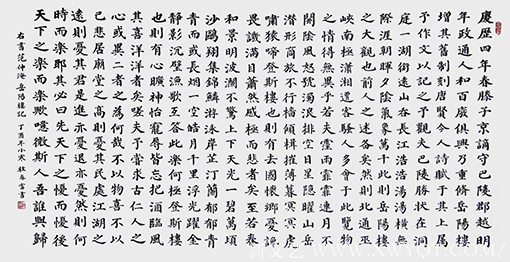 慶歷四年春滕子京謫守巴陵郡越明
年政通人和百廢俱興乃重修岳陽樓
增其舊制刻唐賢今人詩賦于其上屬
予作文以記之予觀夫巴陵勝狀在洞
庭一湖銜遠山吞長江浩浩湯湯橫無
際涯朝暉夕陰氣象萬千此則岳陽樓
之大觀也前人之述备矣然則北通巫
峽南極瀟湘遷客騷人多會于此覽物
之情得無異乎若夫霪雨霏霏連月不
開陰風怒號濁浪排空日星隱曜山岳
潛形商旅不行檣傾楫摧薄暮冥冥虎
嘯猿啼登斯樓也則有去國懷鄉憂讒
畏譏滿目蕭然感極而悲者矣至若春
和景明波瀾不驚上下天光一碧萬頃
沙鷗翔集錦鱗游泳岸芷汀蘭郁郁青
青而或長煙一空皓月千里浮光躍金
靜影沉璧漁歌互答此樂何極登斯樓
也則有心曠神怡寵辱皆忘把酒臨風
其喜洋洋者矣嗟夫予嘗求古仁人之
心或異二者之為何哉不以物喜不以
己悲居廟堂之高則憂其民處江湖之
遠則憂其君是進亦憂退亦憂然則何
時而樂耶其必曰先天下之憂而憂後
天下之樂而樂歟噫微斯人吾誰與歸
右書范仲淹岳陽樓記 丁酉年小寒 杜春雷書